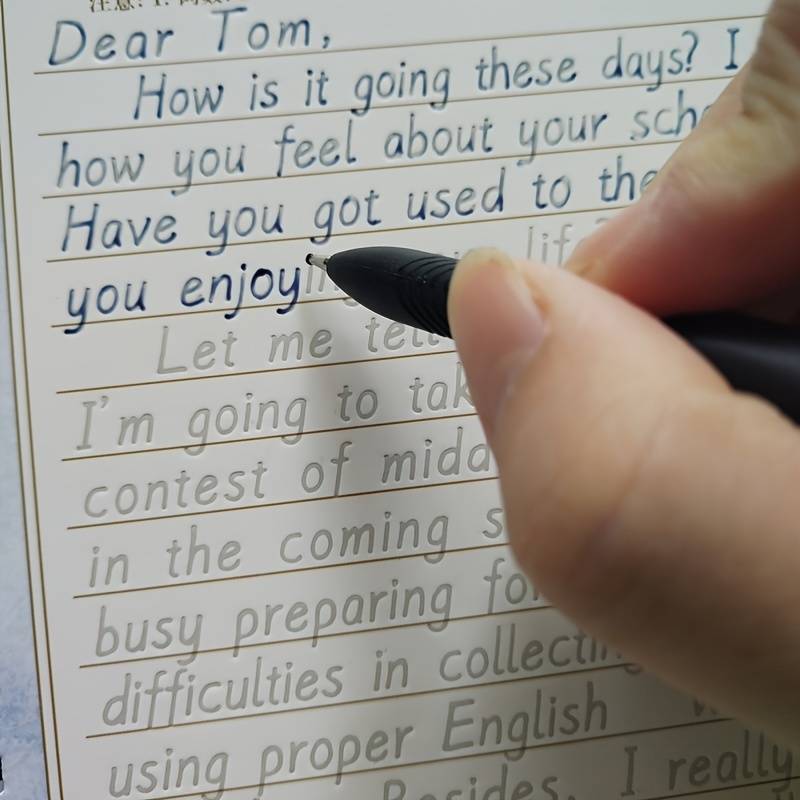 注意: 1.
Dear Tom,
How is it going these days? I
how you feel about your
Have you got used to the
you enjoying
Let me tell
I'm going to
contest of
in the coming
busy preparing for
difficulties in
using proper English
Besides, I really